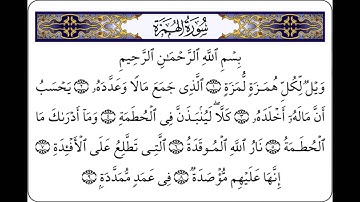 سُورَةُ الهُمَزَةِ
بِسْمِ اللَّهِ الرَّحْمَٰنِ الرَّحِيمِ
وَيْلٌ لِّكُلِّ هُمَزَةٍ لُّمَزَةٍ ۝١ الَّذِي جَمَعَ مَالًا وَعَدَّدَهُ ۝٢ يَحْسَبُ
أَنَّ مَالَهُ أَخْلَدَهُ ۝٣ كَلَّا ۖ لَيُنبَذَنَّ فِي الْحُطَمَةِ ۝٤ وَمَا أَدْرَىٰكَ مَا
الْحُطَمَةُ ۝٥ نَارُ اللَّهِ الْمُوقَدَةُ ۝٦ الَّتِي تَطَّلِعُ عَلَى الْأَفْئِدَةِ ۝٧
إِنَّهَا عَلَيْهِم مُّؤْصَدَةٌ ۝٨ فِي عَمَدٍ مُّمَدَّدَةٍ ۝٩